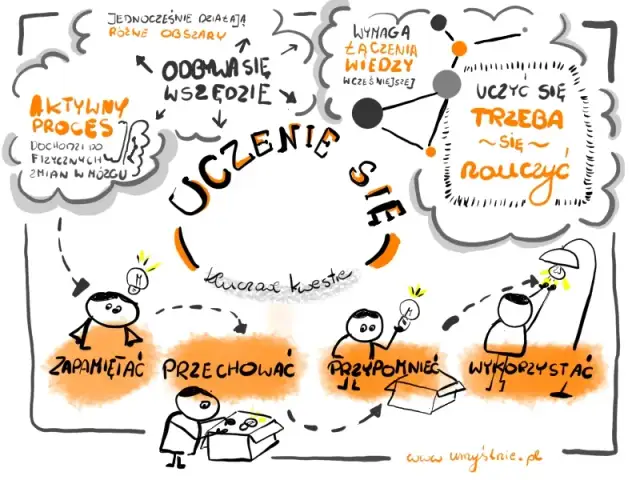 JEDNOCZEŚNIE DZIAŁAJĄ
RÓŻNE OBSZARY
ODBYWA SIĘ
WSZĘDZIE
AKTYWNY
PROCES
DOCHODZI DO
FIZYCZNYCH
ZMIAN W MÓZGU
WYMAGA
ŁĄCZENIA
WIEDZY
WCZEŚNIEJSZEJ
UCZYĆ SIĘ
TRZEBA
~SIĘ~
NAUCZYĆ
UCZENIE SIĘ
kluczowe kwestie
ZAPAMIĘTAĆ
PRZECHOWAĆ
PRZYPOMNIEĆ
WYKORZYSTAĆ
www.umyślnie.pl